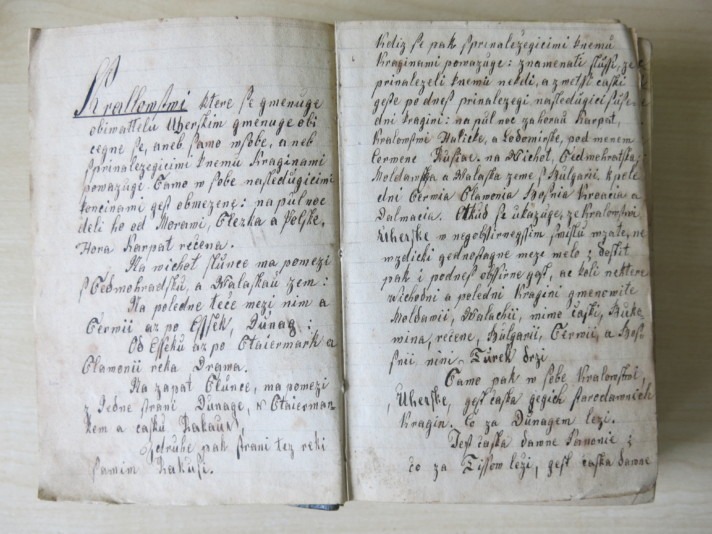 Kralowstwi ktere se gmenuge
obiwattelu Uherskim gmenuge obi
cegne se, aneb samo w sobe, a neb
s prinalezegicimi k nemu Kraginami
powazuge. Samo w sobe nasledugicimi
koncinami gest obmezene: na pul noc
deli ho od Morawi, Slezka a Polske,
Hora Karpat recena.
Na wichot slunce ma pomezi
s Sedmohradsku, a Walaskau zem:
Na poledne tece mezi nim a
Serwii az po Essek, Dunag:
Od Esseku az po Staiermark a
Slawonii reka Drawa.
Na zapat Slunce, ma pomezi
z Jedne strani Dunage, Staierman
kem a castu Rakaus,
Z druhe pak strani tez reki
samim Rakusi.
Kdiz se pak s prinalezegicimi k nemu
Kraginami powazuge: znamenati slussi, ze
prinalezeli k nemu nekdi, a z wetsi caski
geste po dnes prinalezegi nasledugici
dni kragini: na pul noc za horau Karpat,
Kralowstwi Halicke, a Lodomirske, pod menem
cerwene Rusiae. na Wichot, Sedmohratska
Moldawska a Walaska zeme s Bulgarii. k pole
dni Serwia Slawonia Bosnia Kroacia a
Dalmacia. Odtud se ukazuge, ze kralowstwi
Uherske w negobssirnegssim smislu wzate, ne
wzdicki gednostagne meze melo; dostit
pak i podnes obssirne gest, ac koli nektere
wichodni a poledni Kragini gmenowite
Moldawii, Walachii, mimo castki, Buko
wina, recene, Bulgarii, Serwii, a Bos
snii nini Turek drzi.
Samo pak w sobe Kralowstwi,
Uherske, gest castka gegich starodawnich
Kragin. Co za Dunagem lezi.
Gest castka dawne Panonie;
co za Tissow lezi, gest castka dawne